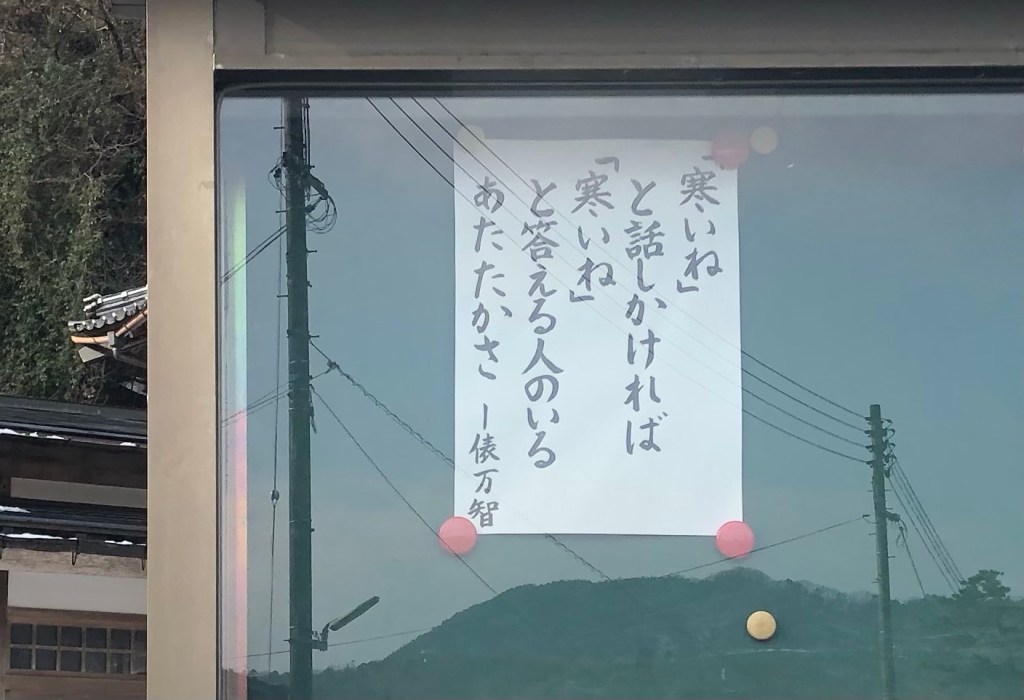 「寒いね」
と話しかければ
「寒いね」
と答える人のいる
あたたかさ ー俵万智